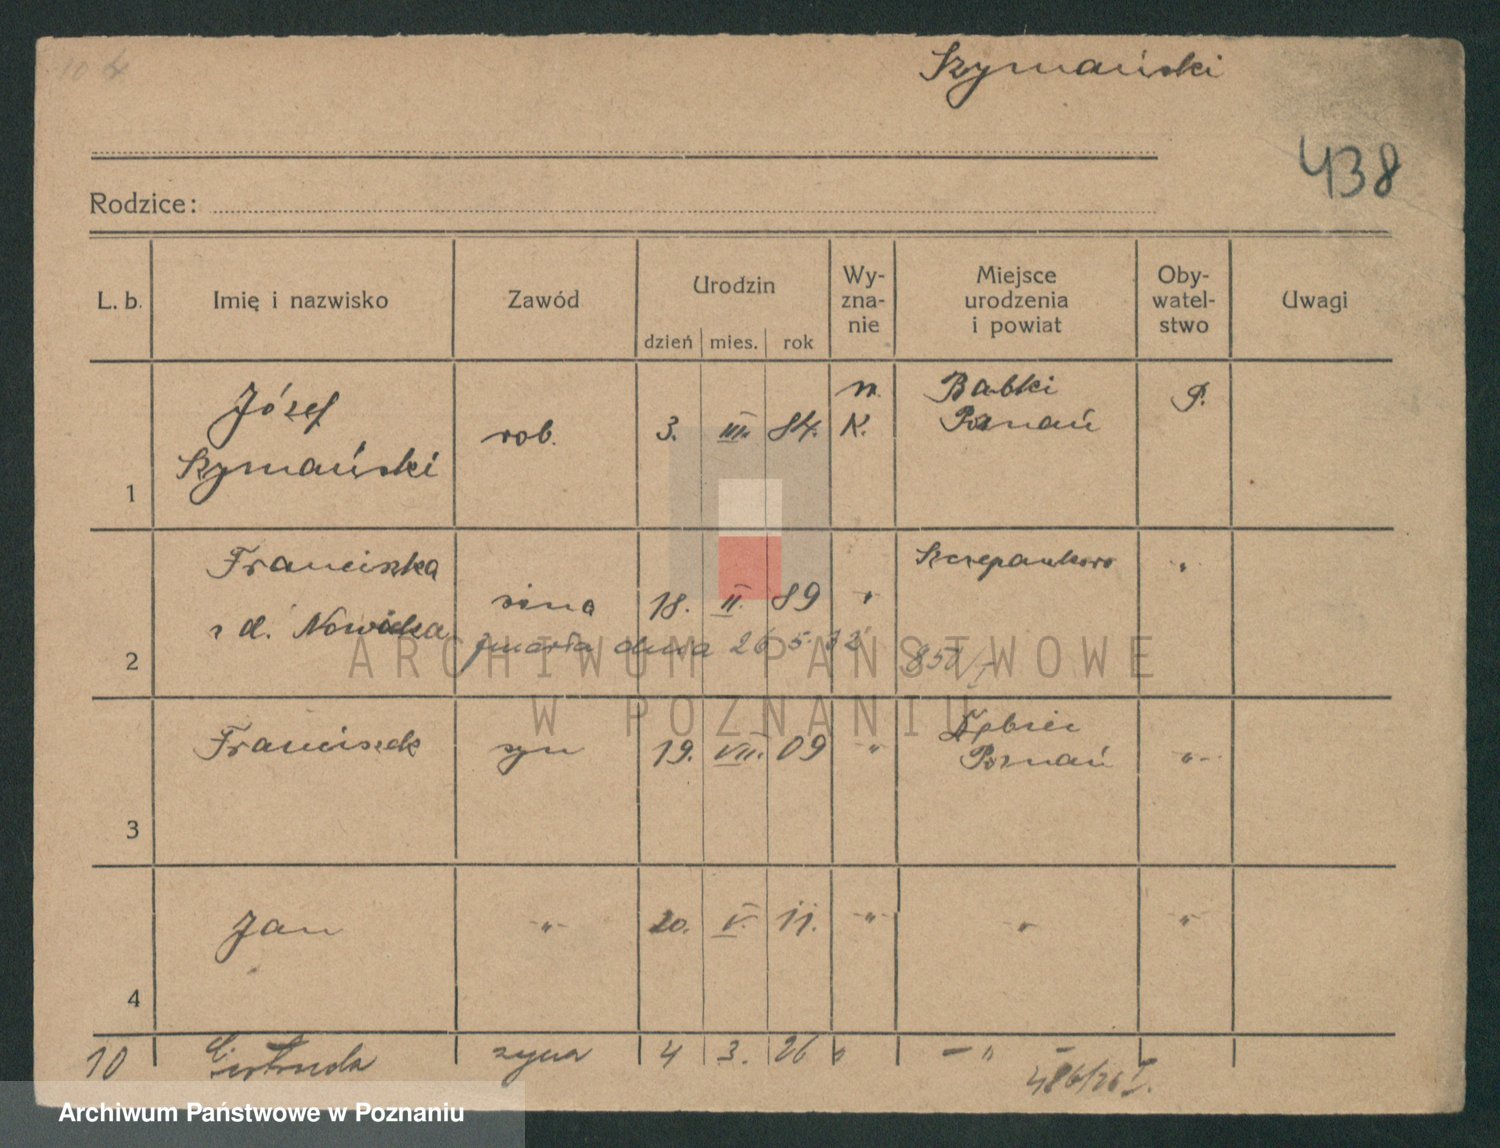 Szymański
438
Rodzice:
L. b. Imię i nazwisko Zawód Urodzin dzień mies. rok Wy-zna-nie Miejsce urodzenia i powiat Oby-watel-stwo Uwagi
Józef rob. 3. III. 84. K. Babki P.
Szymański Poznań
1
Franciszka 18. II. 89 " Szczepankowo "
z d. Nowicka
zmarła dnia 26 5. 32
2
Franciszek syn 19. VII. 09 " Dębiec "
Poznań
3
Jan " 20. V. 11. " " "
4
10 Gertruda 4 3. 26 "
486/26 I.
ARCHIWUM PAŃSTWOWE
W POZNANIU
Archiwum Państwowe w Poznaniu